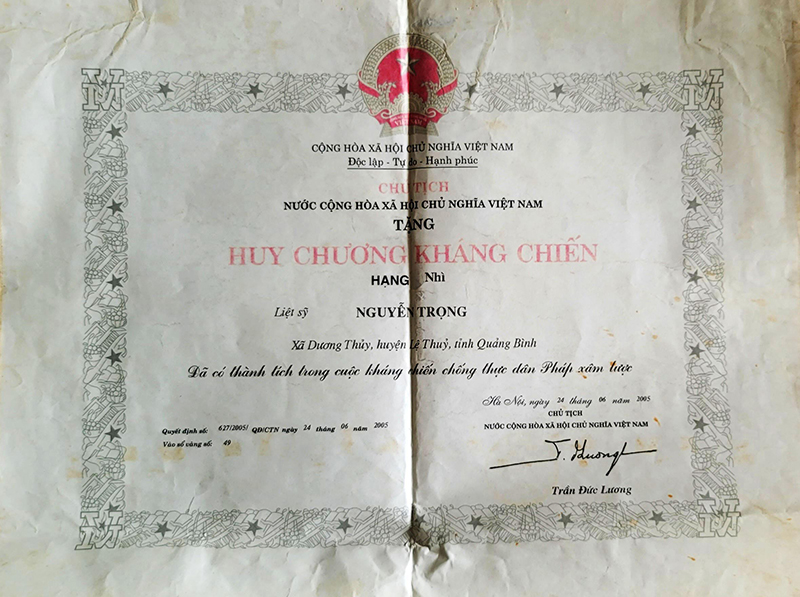 VIỆT NAM
CỘNG HÒA XÃ HỘI CHỦ NGHĨA VIỆT NAM
Độc lập - Tự do - Hạnh phúc
CHỦ TỊCH
NƯỚC CỘNG HÒA XÃ HỘI CHỦ NGHĨA VIỆT NAM
TẶNG
HUY CHƯƠNG KHÁNG CHIẾN
HẠNG Nhì
Liệt sỹ NGUYỄN TRỌNG
Xã Dương Thủy, huyện Lệ Thuỷ, tỉnh Quảng Bình
Đã có thành tích trong cuộc kháng chiến chống thực dân Pháp xâm lược
Hà Nội, ngày 24 tháng 06 năm 2005
CHỦ TỊCH
NƯỚC CỘNG HÒA XÃ HỘI CHỦ NGHĨA VIỆT NAM
Quyết định số: 627/2005/ QĐ/CTN ngày 24 tháng 06 năm 2005
Vào sổ vàng số: 49
T. Lương
Trần Đức Lương